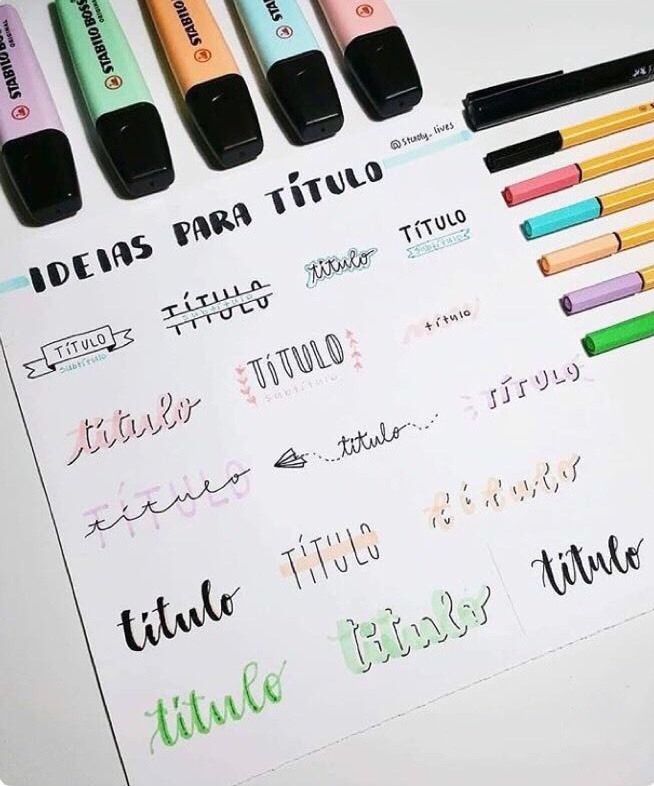 STABILO BOSS ORIGINAL
STABILO BOSS ORIGINAL
STABILO BOSS
STABILO BOSS
STABILO
@study_lives
IDEIAS PARA TÍTULO
TÍTULO
subtítulo
TÍTULO
subtítulo
título
TÍTULO
subtítulo
título
TÍTULO
subtítulo
título
TÍTULO
título
título
TÍTULO
título
TÍTULO
título
título
título
título